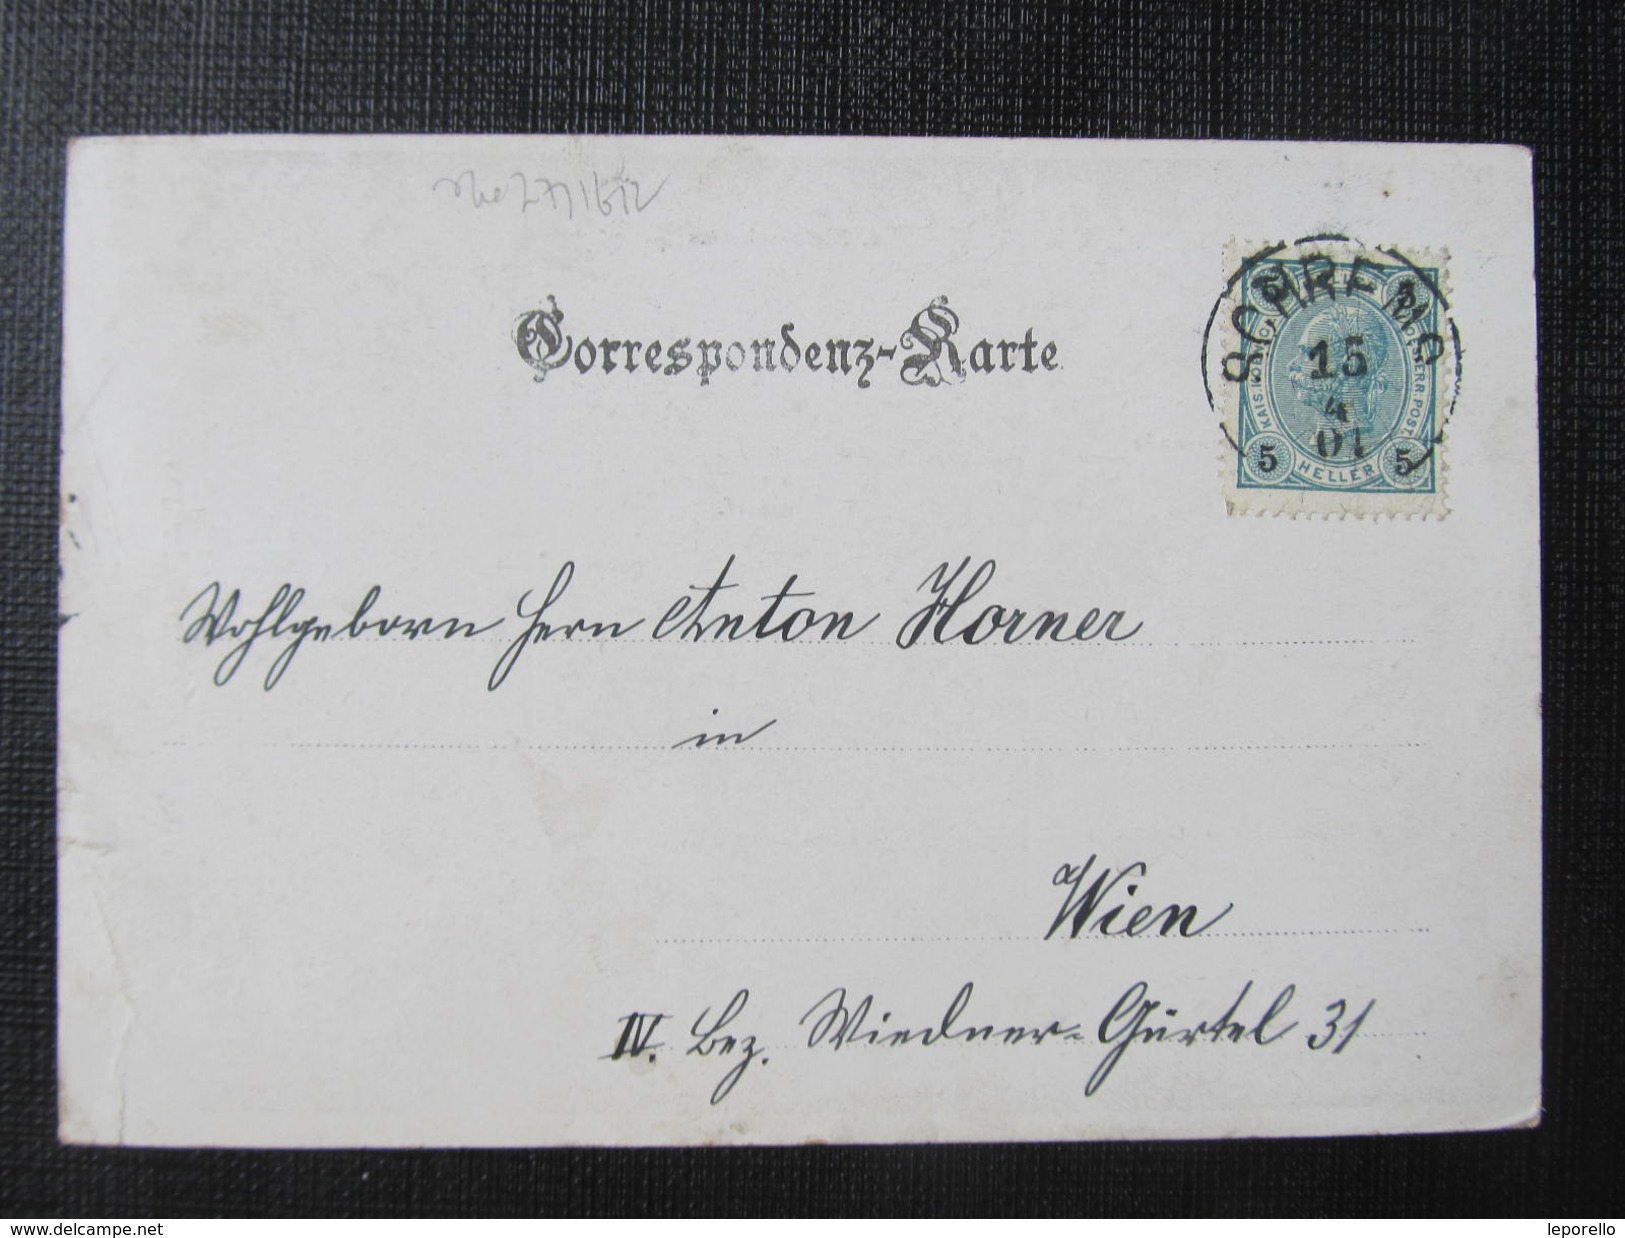 Correspondenz-Karte
SCHREMS
15
4
01
KAIS. KÖNIGL. OESTERR. POST.
5 5
5 HELLER 5
Wohlgeborn Herrn Anton Horner
in
Wien
IV. Bez. Wiedner-Gürtel 31
www.delcampe.net
leporello